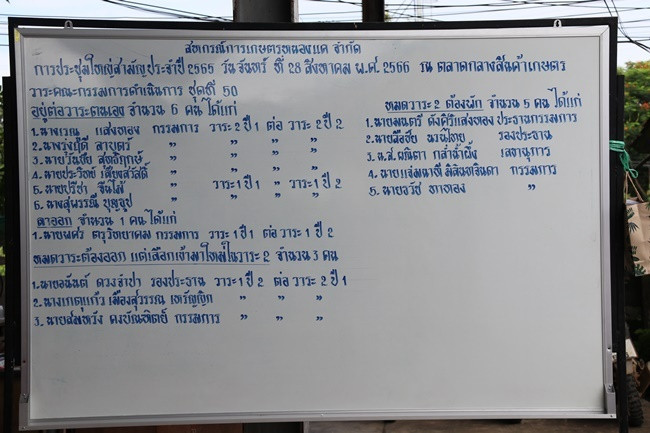 สหกรณ์การเกษตรหนองแค จำกัด
การประชุมใหญ่สามัญประจำปี 2565 วันจันทร์ ที่ 28 สิงหาคม พ.ศ. 2566 ณ ตลาดกลางสินค้าเกษตร
วาระคณะกรรมการดำเนินการ ชุดที่ 50
อยู่ต่อวาระตนเอง จำนวน 6 คน ได้แก่
1. แสงทอง กรรมการ วาระ 2 ปี 1 ต่อ วาระ 2 ปี 2
2. นางรุ่งฤดี สาบุตร์ " " " "
3. นายวันชัย สุดอักกษ์ " " " "
4. นายประวิทย์ เสียงสวัสดิ์ " " " "
5. นายปรีชา จีนโต " วาระ 1 ปี 1 " วาระ 1 ปี 2
6. นางสุพรรณี บุญชุบ " " " "
ลาออก จำนวน 1 คน ได้แก่
1. นายพศร ตรุวิทยาคม กรรมการ วาระ 1 ปี 1 ต่อ วาระ 1 ปี 2
หมดวาระต้องออก แต่เลือกเข้ามาใหม่ในวาระ 2 จำนวน 3 คน
1. นายอนันต์ ดวงจำปา รองประธาน วาระ 1 ปี 2 ต่อ วาระ 2 ปี 1
2. นางเกตุแก้ว เมืองสุวรรณ เหรัญญิก " " "
3. นายสมหวัง คงบัณฑิตย์ กรรมการ " " "
หมดวาระ 2 ต้องพัก จำนวน 5 คน ได้แก่
1. นายมนตรี ตังคีรีแสงทอง ประธานกรรมการ
2. นายลือชัย นวนไทย รองประธาน
3. น.ส. ผณิตา กล่ำฉ่ำผึ้ง เลขานุการ
4. นายแจ่มนาที มิลินทจินดา กรรมการ
5. นายธวัช ทาทอง "